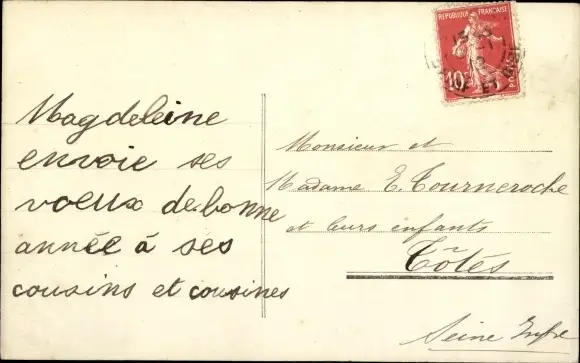 Magdeleine
envoie ses
voeux de bonne
année à ses
cousins et cousines
REPUBLIQUE FRANÇAISE
10
Monsieur et
Madame E. Tourneroche
et leurs enfants
Tôtes
Seine Infre